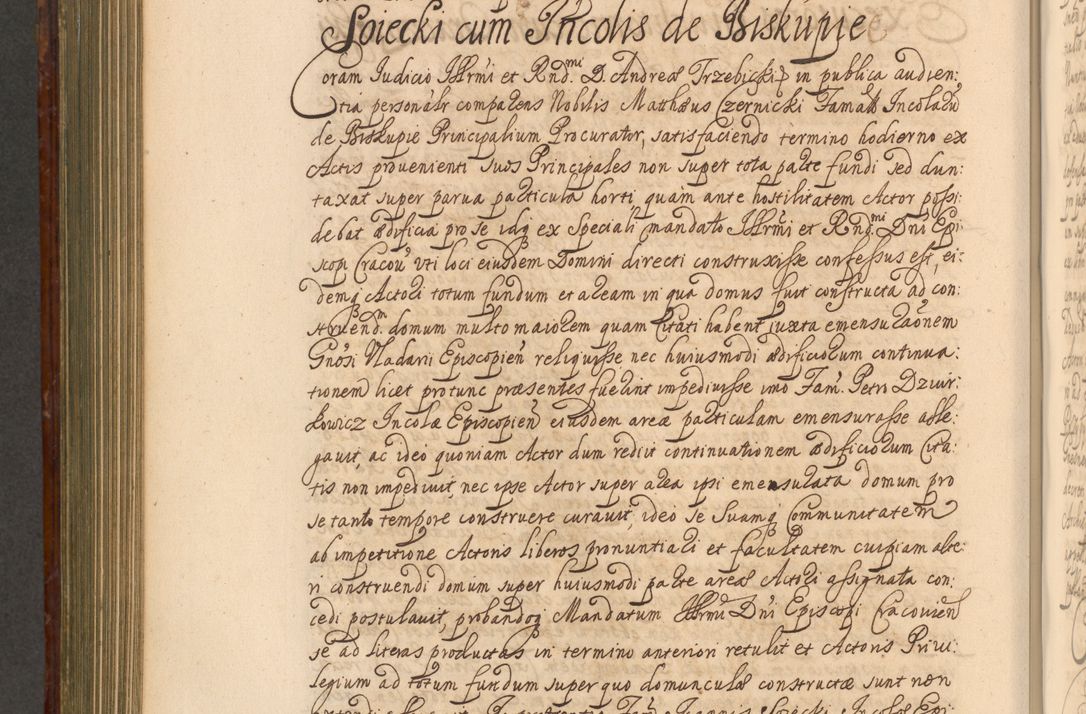 Soiecki cum Incolis de Biskupie
Coram Judicio Illrmi et Rndmi D. Andreæ Trzebicki in publica audien:
tia personalr comparens Nobilis Matthæus Czernicki Famatt Incolarū
de Biskupie Principalium Procurator, satisfaciendo termino hodierno ex
Actis provenienti Suos Principales non super tota parte fundi sed dun:
taxat super parva particula horti, quam ante hostilitatem Actor possi:
debat ædificia pro se idq ex speciali mandato Illrmi et Rndmi Dni Epi:
scopi Cracou uti loci eiusdem Domini directi construxisse confessus est, ei:
demq Actori totum fundum et aream in qua domus fuit constructa ad con:
struendm domum multo maiorem quam Citati habent iuxta emensuraōnem
Gnosi Vladarii Episcopien reliquisse nec huiusmodi ædificiorum continua:
tionem licet protunc præsentes fuerint impedivisse imo Fam. Petro Dzwir:
kowicz Incolæ Episcopien eiusdem areæ particulam emensurasse alle:
gavit, ac ideo quoniam Actor dum rediit continuationem ædificiorum Cita:
tis non impedivit, nec ipse Actor super area ipsi emensurata domum pro
se tanto tempore construere curavit, ideo se Suamq Communitatem
ab impetitione Actoris liberos pronuntiari et facultatem cuipiam alte:
ri construendi domum super huiusmodi parte areæ Actori assignata con:
cedi postulavit, probandoq Mandatum Illrmi Dni Episcopi Cracovien
se ad literas productas in termino anteriori retulit et Actoris Privi:
legium ad totum fundum super quo domunculæ constructæ sunt non